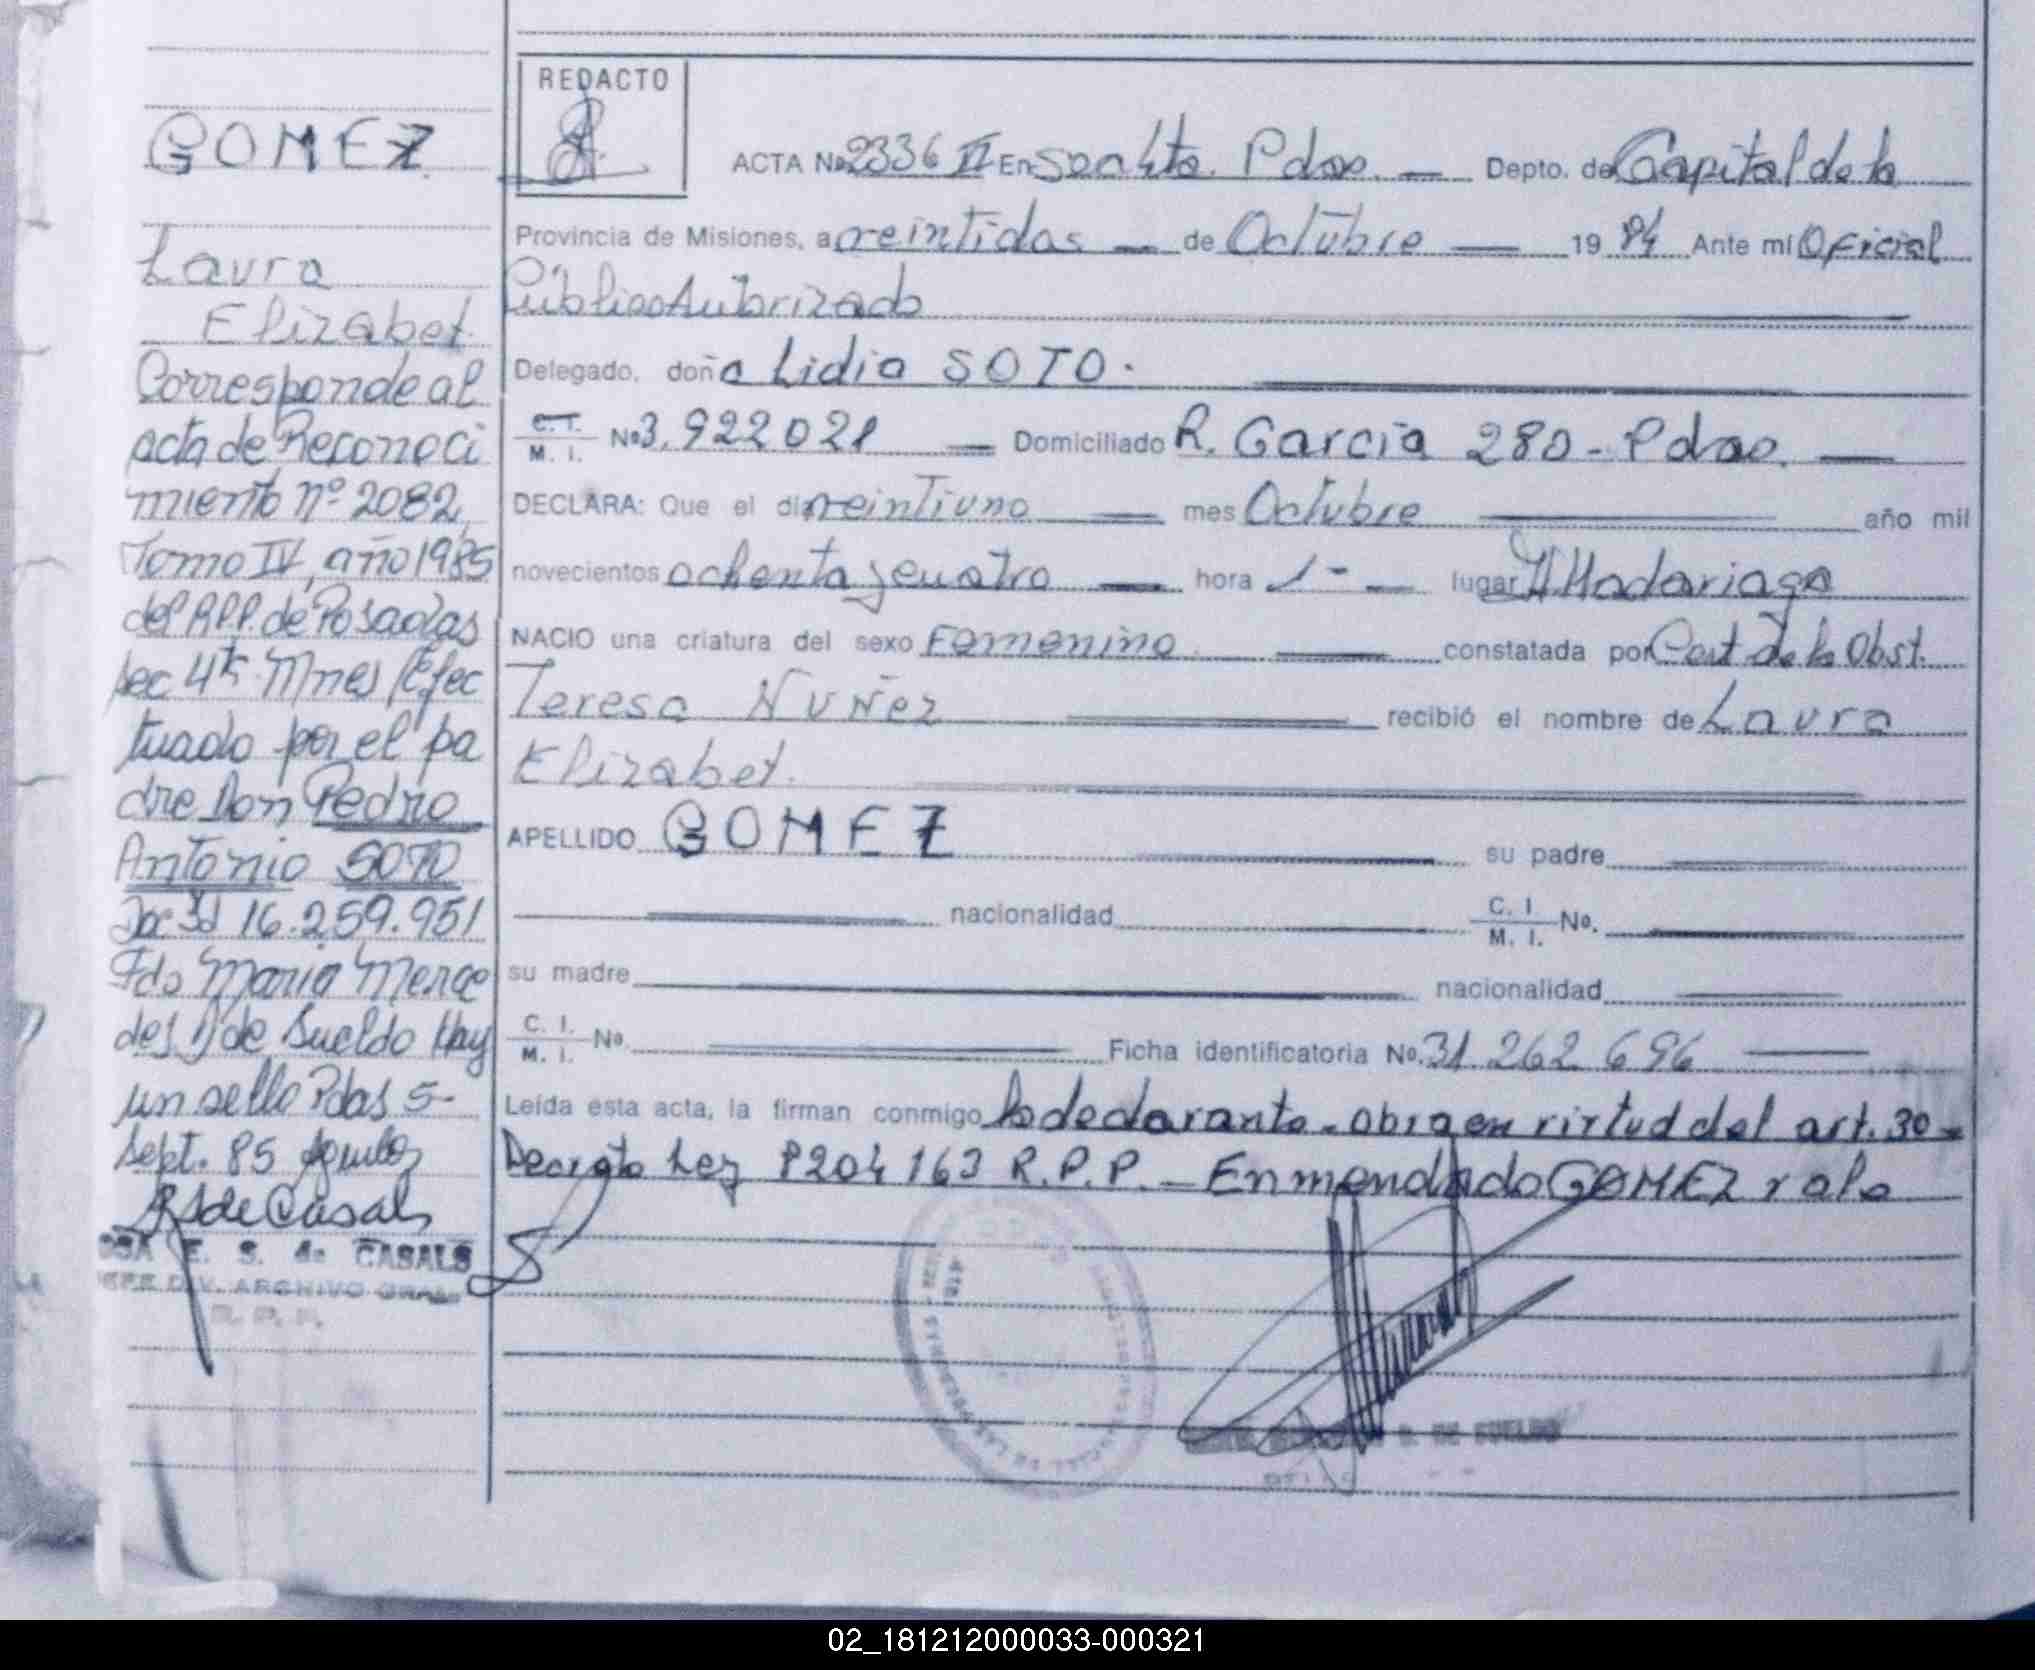 GOMEZ
Laura
Elizabet
Corresponde al
acta de Reconoci
miento nº 2082,
Tomo IV, año 1985
del RPP. de Posadas
sec 4ta Mnes, Efec
tuado por el pa
dre Don Pedro
Antonio SOTO
Doc Id 16.259.951
Fdo Maria Merce
des D de Sueldo Hay
un sello Pdas 5-
Sept. 85
RS de Casals
E. S. de CASALS
JEFE DIV. ARCHIVO GRAL
R. P. P.
REDACTO
ACTA No. 2336 II En Sec 4ta. Pdas. — Depto. de Capital de la
Provincia de Misiones, a veintidos — de Octubre — 19 84 Ante mí Oficial
Público Autorizado
Delegado, doña Lidia SOTO.
C. I. M. I. No 3.922021 — Domiciliado R. Garcia 280 - Pdas. —
DECLARA: Que el día veintiuno — mes Octubre — año mil
novecientos ochenta y cuatro — hora 1- — lugar H Madariaga
NACIO una criatura del sexo Femenino. — constatada por Cert de la Obst.
Teresa Nuñez — recibió el nombre de Laura
Elizabet.
APELLIDO GOMEZ — su padre —
— nacionalidad C. I. M. I. No. —
su madre — nacionalidad —
C. I. M. I. No. — Ficha identificatoria No. 31.262.696 —
Leída esta acta, la firman conmigo la declarante. Obra en virtud del art. 30-
Decreto Ley 8204/63 R.P.P. - Enmendado GOMEZ vale
D. DE SUELDO
02_181212000033-000321